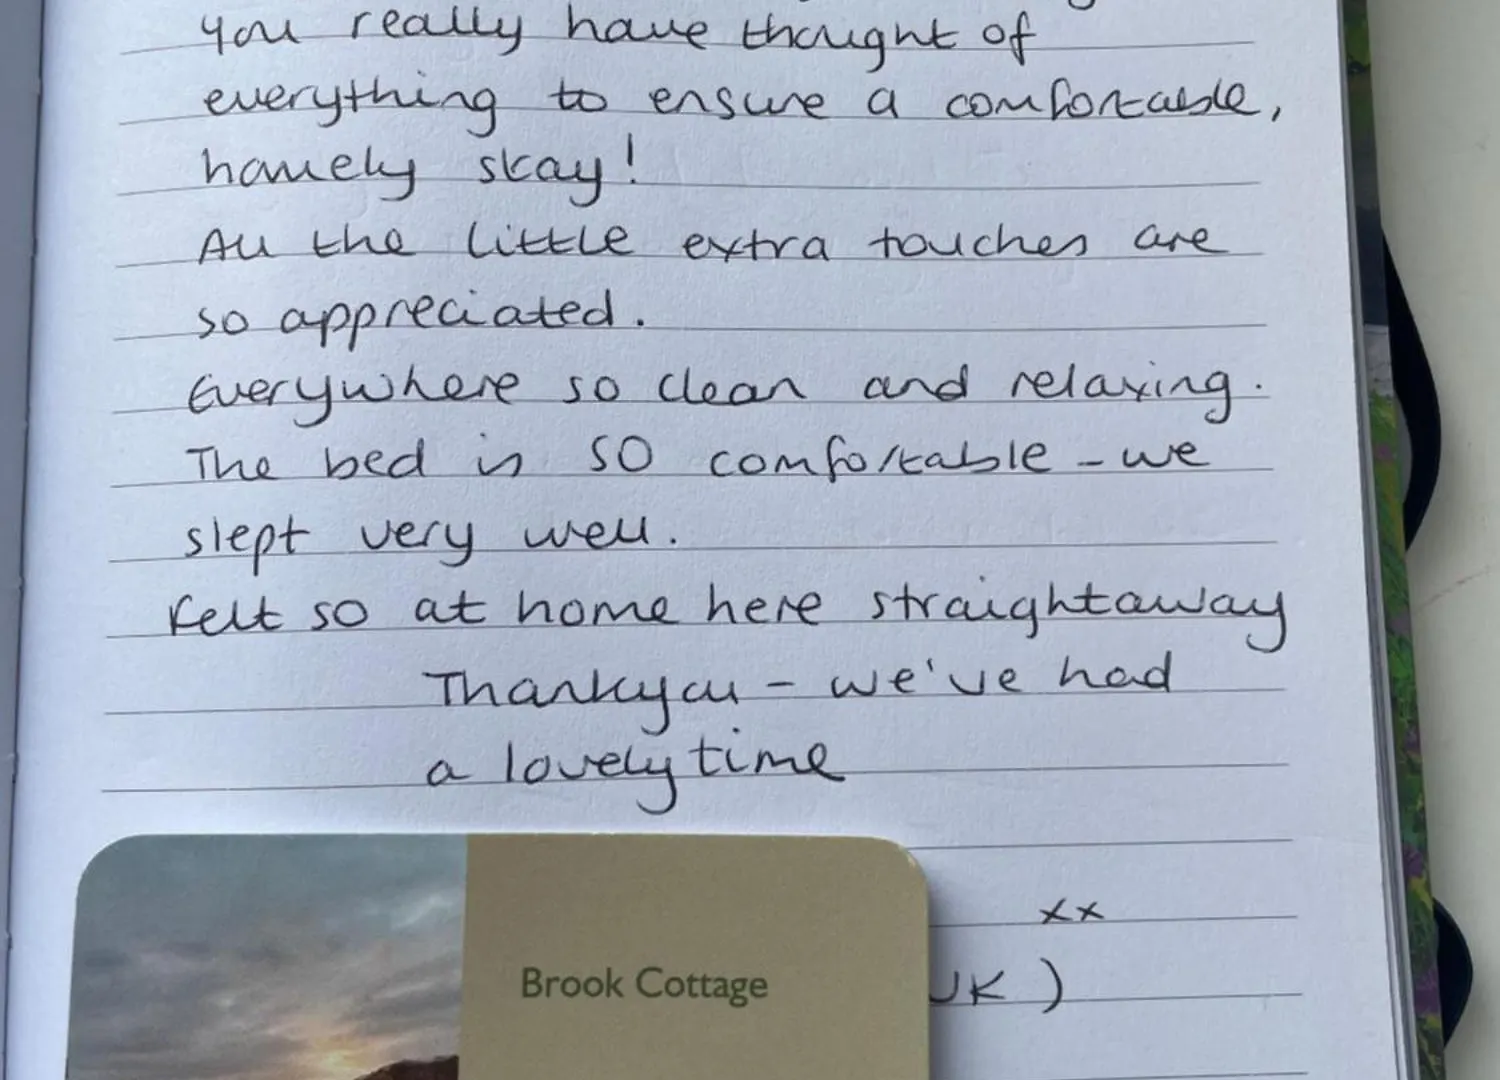 you really have thought of
everything to ensure a comfortable,
homely stay!
All the little extra touches are
so appreciated.
Everywhere so clean and relaxing.
The bed is SO comfortable - we
slept very well.
Felt so at home here straightaway
Thankyou - we've had
a lovely time
xx
Brook Cottage
UK )